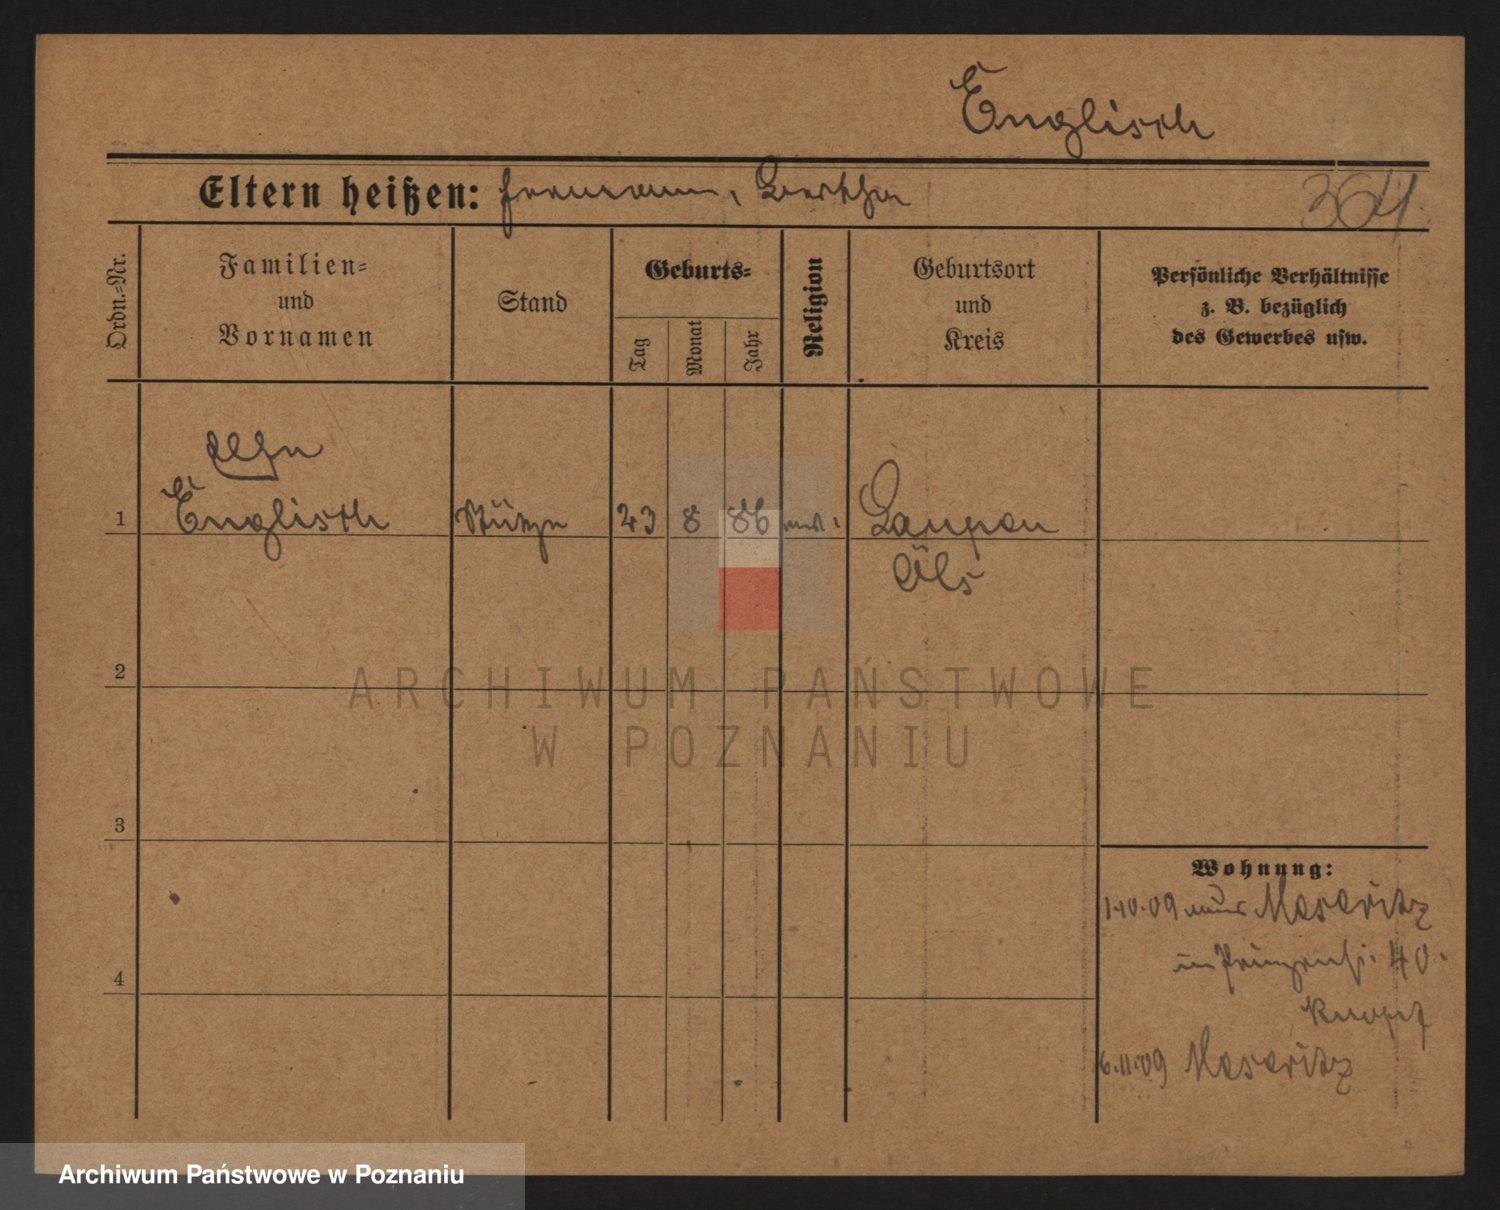 Englisch
Eltern heißen: Hermann, Bertha
364
Ordn.-Nr.
Familien-
und
Vornamen
Stand
Geburts-
Tag
Monat
Jahr
Religion
Geburtsort
und
Kreis
Persönliche Verhältnisse
z. B. bezüglich
des Gewerbes usw.
1
Englisch
Stütze
23
8
86
Öls
2
3
4
Wohnung:
1.10.09 Meseritz
in Prinzenst. 40.
6.11.09 Meseritz
ARCHIWUM PAŃSTWOWE
W POZNANIU
Archiwum Państwowe w Poznaniu